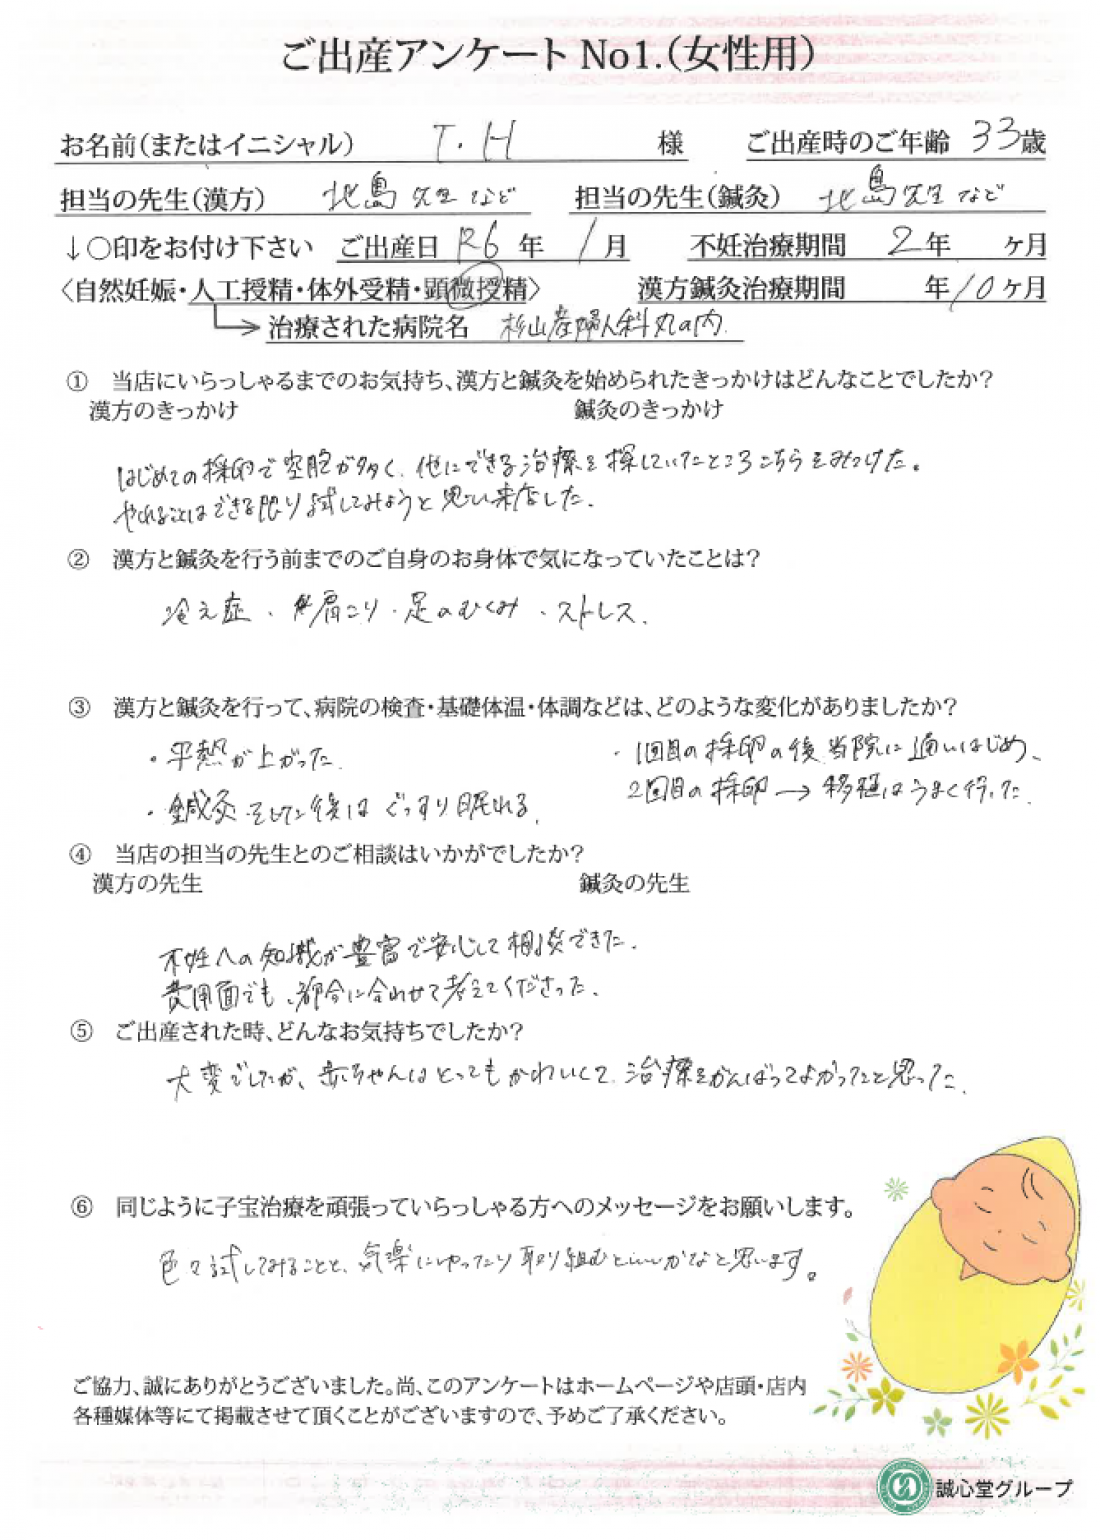 ご出産アンケート No1.(女性用)
お名前(またはイニシャル) T.H 様 ご出産時のご年齢 33歳
担当の先生(漢方) 北島先生など 担当の先生(鍼灸) 北島先生など
↓○印をお付け下さい ご出産日 R6年 1月 不妊治療期間 2年 ヶ月
〈自然妊娠・人工授精・体外受精・顕微授精〉 漢方鍼灸治療期間 年10ヶ月
治療された病院名 杉山産婦人科丸の内
① 当店にいらっしゃるまでのお気持ち、漢方と鍼灸を始められたきっかけはどんなことでしたか?
漢方のきっかけ 鍼灸のきっかけ
はじめての採卵で空胞が多く、他にできる治療を探していたところこちらをみつけた。
やれることはできる限り試してみようと思い来店した。
② 漢方と鍼灸を行う前までのご自身のお身体で気になっていたことは?
冷え症・肩こり・足のむくみ・ストレス.
③ 漢方と鍼灸を行って、病院の検査・基礎体温・体調などは、どのような変化がありましたか?
・平熱が上がった.
・鍼灸をした後はぐっすり眠れる.
・1回目の採卵の後、当院に通いはじめ、
2回目の採卵→移植はうまく行った.
④ 当店の担当の先生とのご相談はいかがでしたか?
漢方の先生 鍼灸の先生
不妊への知識が豊富で安心して相談できた.
費用面でも、都合に合わせて考えてくださった.
⑤ ご出産された時、どんなお気持ちでしたか?
大変でしたが、赤ちゃんはとってもかわいくて、治療をがんばってよかったと思った.
⑥ 同じように子宝治療を頑張っていらっしゃる方へのメッセージをお願いします。
色々試してみることと、気楽にゆったり取り組むといいかなと思います。
ご協力、誠にありがとうございました。尚、このアンケートはホームページや店頭・店内
各種媒体等にて掲載させて頂くことがございますので、予めご了承ください。
誠心堂グループ